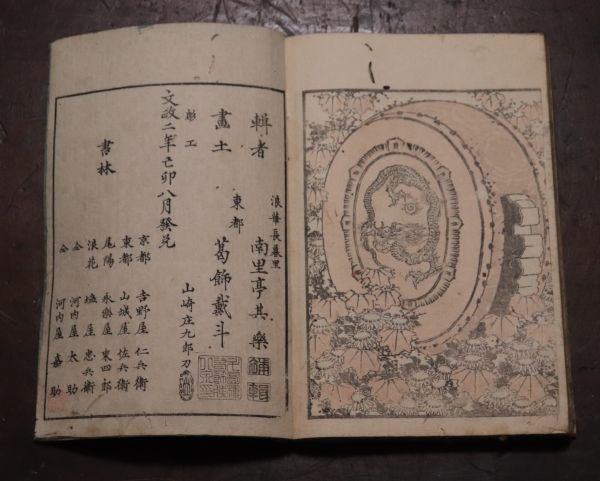 輯者 浪華長暮里 南里亭其樂 補輯
畫士 東都 葛飾戴斗
彫工 山崎庄九郎刀
文政二年己卯八月發兌
書林
京都 吉野屋 仁兵衛
東都 山城屋 佐兵衛
尾陽 永樂屋 東四郎
浪花 塩屋 忠兵衛
仝 河内屋 太助
仝 河内屋 嘉助